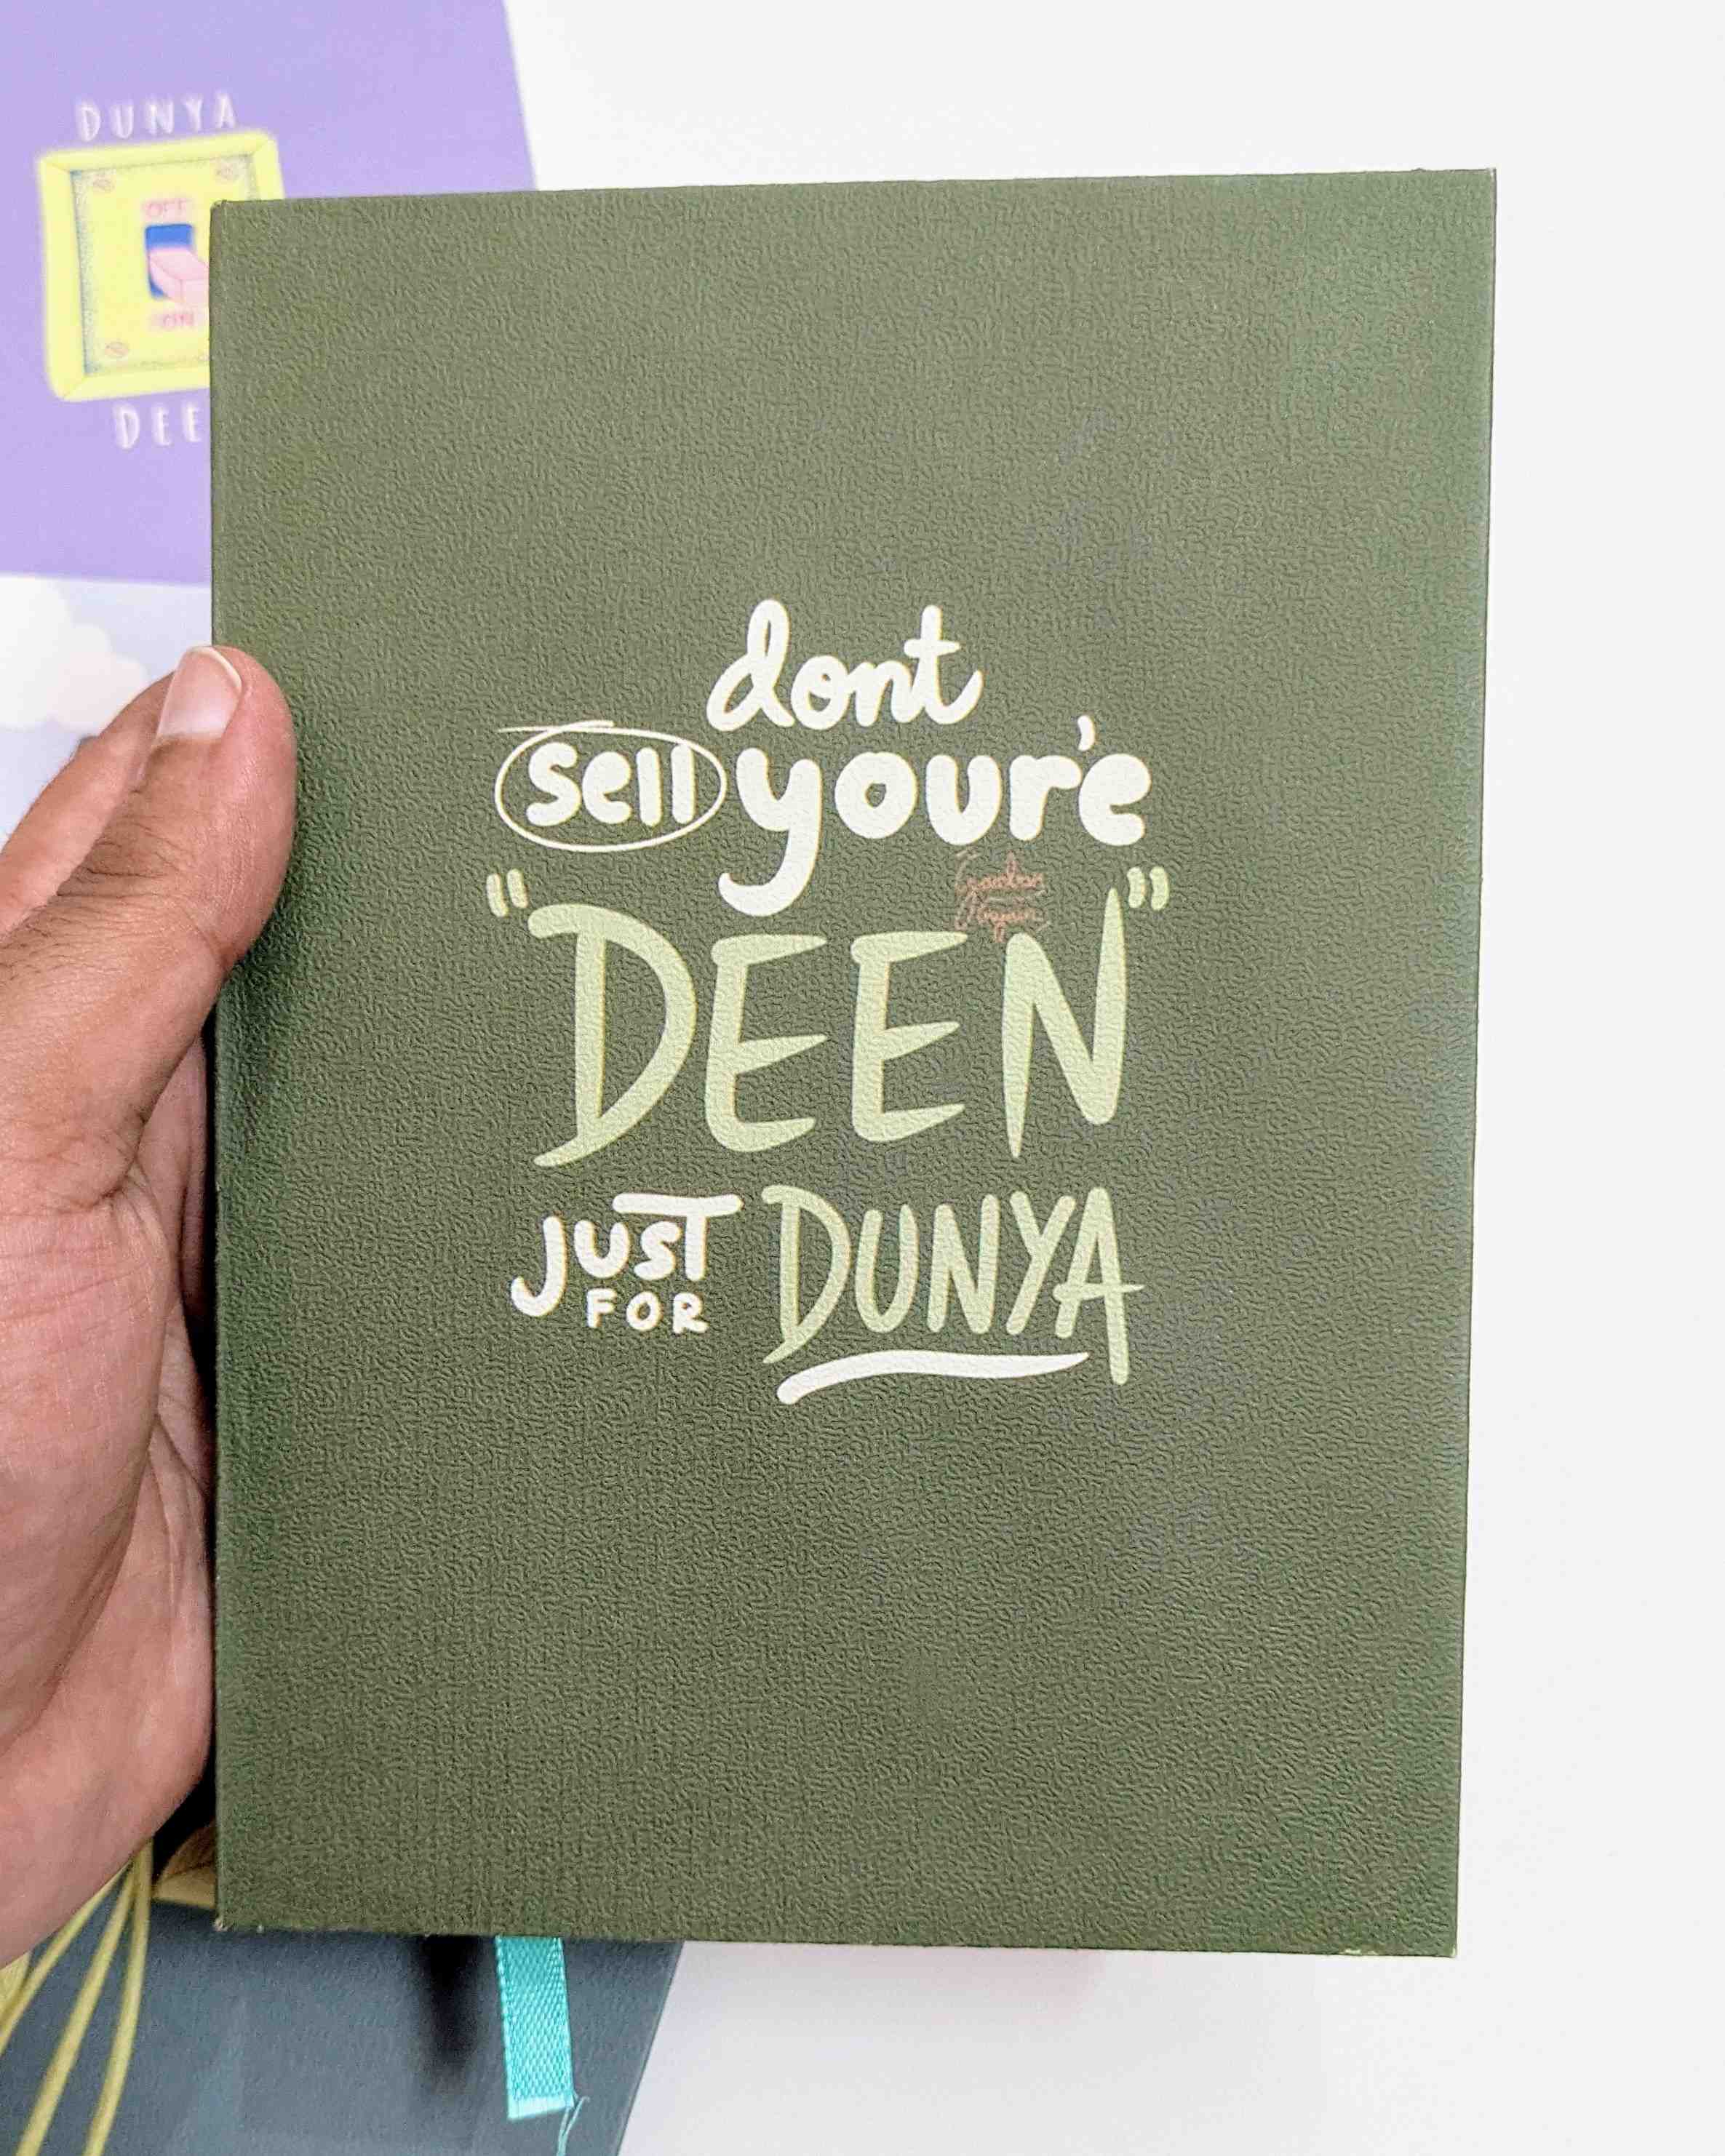 DUNYA
OFF
ON
DEE
dont
sell your'e
"DEEN"
JUST
FOR
DUNYA